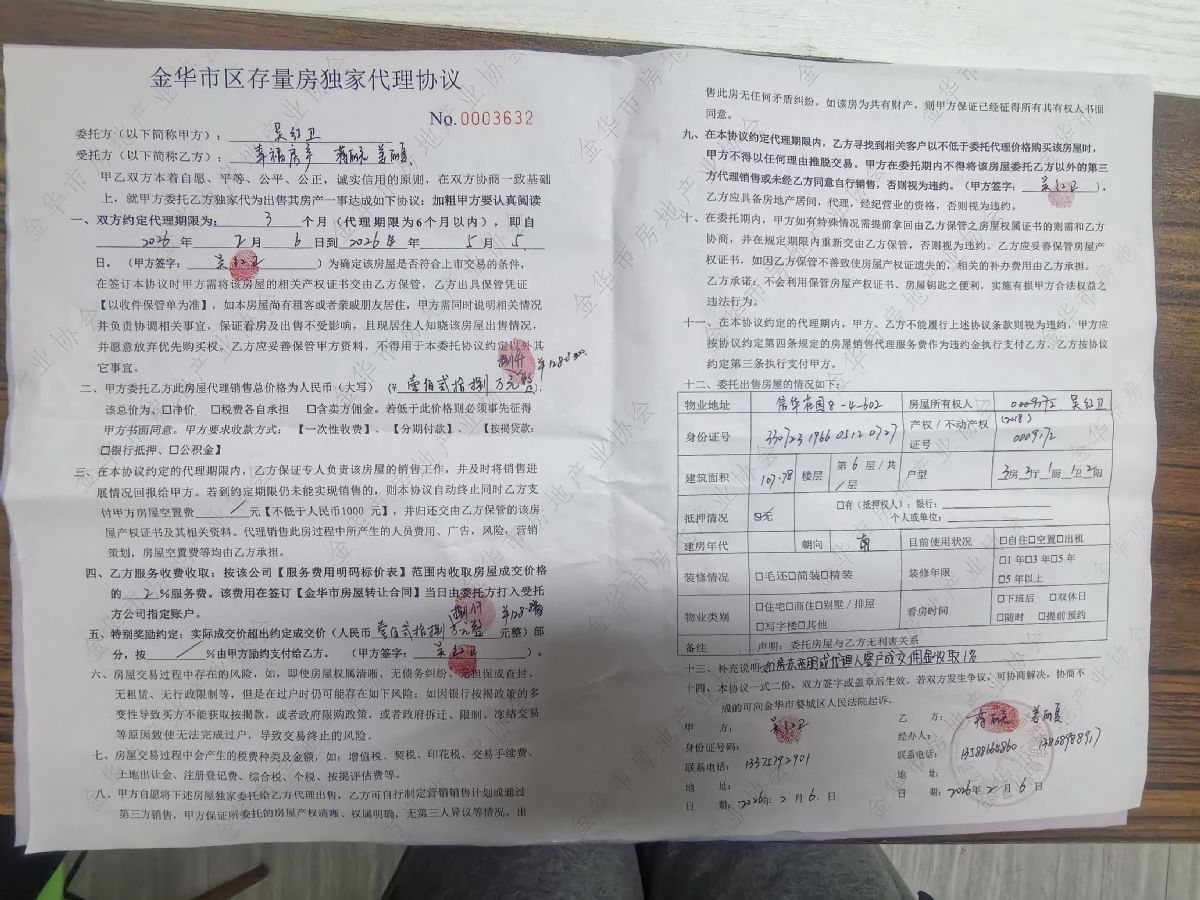 金华市区存量房独家代理协议
No.0003632
委托方（以下简称甲方）：吴红卫
受托方（以下简称乙方）：幸福房产 蒋丽亮 姜丽颖
甲乙双方本着自愿、平等、公平、公正，诚实信用的原则，在双方协商一致基础
上，就甲方委托乙方独家代为出售其房产一事达成如下协议：加粗甲方要认真阅读
一、双方约定代理期限为：3 个月（代理期限为6个月以内），即自
2026 年 2 月 6 日到 2026 年 5 月 5
日。（甲方签字：吴红卫）为确定该房屋是否符合上市交易的条件，
在签订本协议时甲方需将该房屋的相关产权证书交由乙方保管，乙方出具保管凭证
【以收件保管单为准】，如本房屋尚有租客或者亲戚朋友居住，甲方需同时说明相关情况
并负责协调相关事宜，保证看房及出售不受影响，且现居住人知晓该房屋出售情况，
并愿意放弃优先购买权。乙方应妥善保管甲方资料，不得用于本委托协议约定以外其
它事宜。
二、甲方委托乙方此房屋代理销售总价格为人民币（大写）（¥ 壹佰贰拾捌 万元整），
该总价为、□净价 □税费各自承担 □含卖方佣金。若低于此价格则必须事先征得
甲方书面同意。甲方要求收款方式：【一次性收费】、【分期付款】、【按揭贷款：
□银行抵押、□公积金】
三、在本协议约定的代理期限内，乙方保证专人负责该房屋的销售工作，并及时将销售进
展情况回报给甲方。若到约定期限仍未能实现销售的，则本协议自动终止同时乙方支
付甲方房屋空置费 / 元【不低于人民币1000 元】，并归还交由乙方保管的该房
屋产权证书及其相关资料。代理销售此房过程中所产生的人员费用、广告，风险，营销
策划，房屋空置费等均由乙方承担。
四、乙方服务收费收取：按该公司【服务费用明码标价表】范围内收取房屋成交价格
的 2 %服务费。该费用在签订【金华市房屋转让合同】当日由委托方打入受托
方公司指定账户。
五、特别奖励约定：实际成交价超出约定成交价（人民币 壹佰贰拾捌 万元整 元整）部
分，按 / %由甲方励约支付给乙方。（甲方签字：吴红卫）。
六、房屋交易过程中存在的风险，如，即使房屋权属清晰、无债务纠纷、无担保或查封、
无租赁、无行政限制等，但是在过户时仍可能存在如下风险：如因银行按揭政策的多
变性导致买方不能获取按揭款，或者政府限购政策，或者政府拆迁、限制、冻结交易
等原因致使无法完成过户，导致交易终止的风险。
七、房屋交易过程中会产生的税费种类及金额，如：增值税、契税、印花税、交易手续费、
土地出让金、注册登记费、综合税、个税、按揭评估费等。
八、甲方自愿将下述房屋独家委托给乙方代理出售，乙方可自行制定营销销售计划或通过
第三方销售，甲方保证所委托的房屋产权清晰、权属明确，无第三人异议等情况。出
售此房无任何矛盾纠纷，如该房为共有财产，则甲方保证已经征得所有其有权人书面
同意。
九、在本协议约定代理期限内，乙方寻找到相关客户以不低于委托代理价格购买该房屋时，
甲方不得以任何理由推脱交易。甲方在委托期内不得将该房屋委托乙方以外的第三
方代理销售或未经乙方同意自行销售，否则视为违约。（甲方签字：吴红卫），
乙方应具备房地产居间，代理，经纪营业的资格，否则视为违约。
十、在委托期内，甲方如有特殊情况需提前拿回由乙方保管之房屋权属证书的则需和乙方
协商，并在规定期限内重新交由乙方保管，否则视为违约。乙方应妥善保管房屋产
权证书，如因乙方保管不善致使房屋产权证遗失的，相关的补办费用由乙方承担。
乙方承诺：不会利用保管房屋产权证书、房屋钥匙之便利，实施有损甲方合法权益之
违法行为。
十一、在本协议约定的代理期内，甲方、乙方不能履行上述协议条款则视为违约，甲方应
按协议约定第四条规定的房屋销售代理服务费作为违约金执行支付乙方。乙方按协议
约定第三条执行支付甲方。
十二、委托出售房屋的情况如下：
物业地址 信华花园8-4-602 房屋所有权人 0009172 吴红卫
身份证号 330723196605120727 产权/不动产权证号 (2018) 0009172
建筑面积 107.78 楼层 第 6 层/共 / 层 户型 3房 2厅 1厨 1卫 2阳
抵押情况 ☑无 □有（抵押权人）：银行：
个人或单位：
建房年代 朝向 南 目前使用状况 □自住□空置□出租
装修情况 □毛还□简装□精装 装修年限 □1 年□3 年□5 年
□5 年以上
物业类别 □住宅□商住□别墅／排屋 看房时间 □下班后 □双休日
□写字楼□其他 □随时 □提前预约
备注 声明：委托房屋与乙方无利害关系
十三、补充说明：
十四、本协议一式二份，双方签字或盖章后生效。若双方发生争议，可协商解决，协商不
成的可向金华市婺城区人民法院起诉。
甲 方：吴红卫
身份证号码：
联系电话：13375792901
地 址：
日 期：2026年 2 月 6 日
乙 方：蒋丽亮 姜丽颖
经办人：
联系电话：13588664860 13868988917
地 址：
日 期：2026年 2 月 6 日